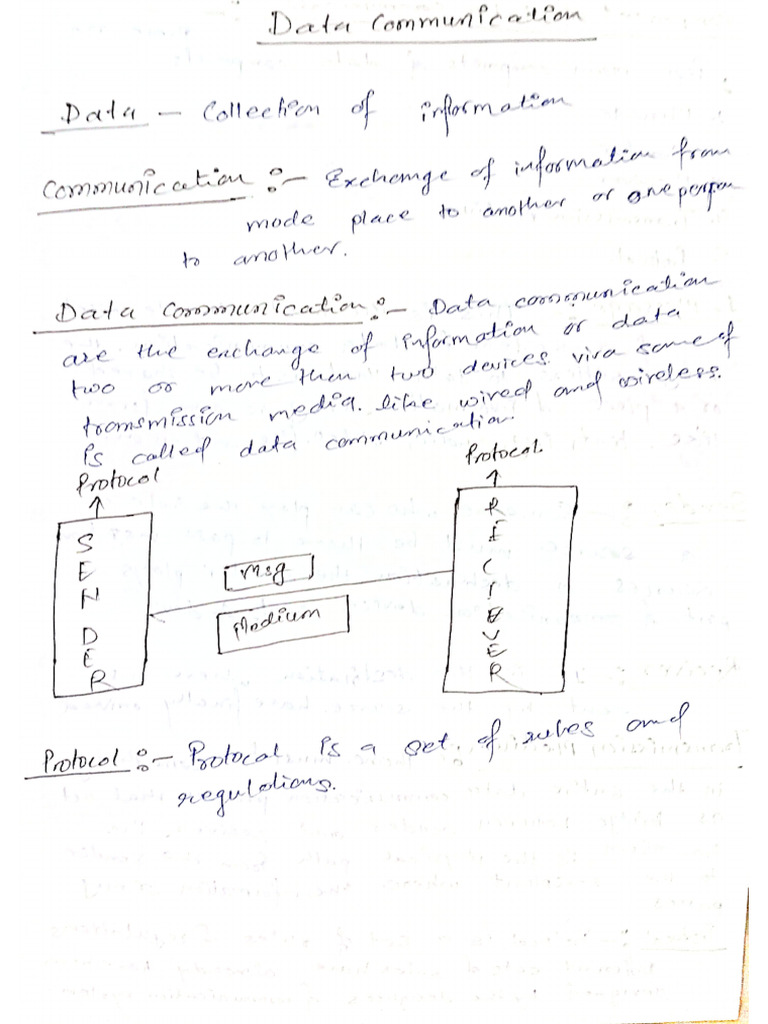 Data Communication
Data — Collection of information
Communication :— Exchange of information from
mode place to another or one person
to another.
Data Communication :— Data communication
are the exchange of information or data
two or more then two devices viva some of
transmission media. like wired and wireless.
is called data communication.
Protocol
Protocol.
SENDER
Msg
Medium
RECIEVER
Protocol :— Protocol is a set of rules and
regulations.